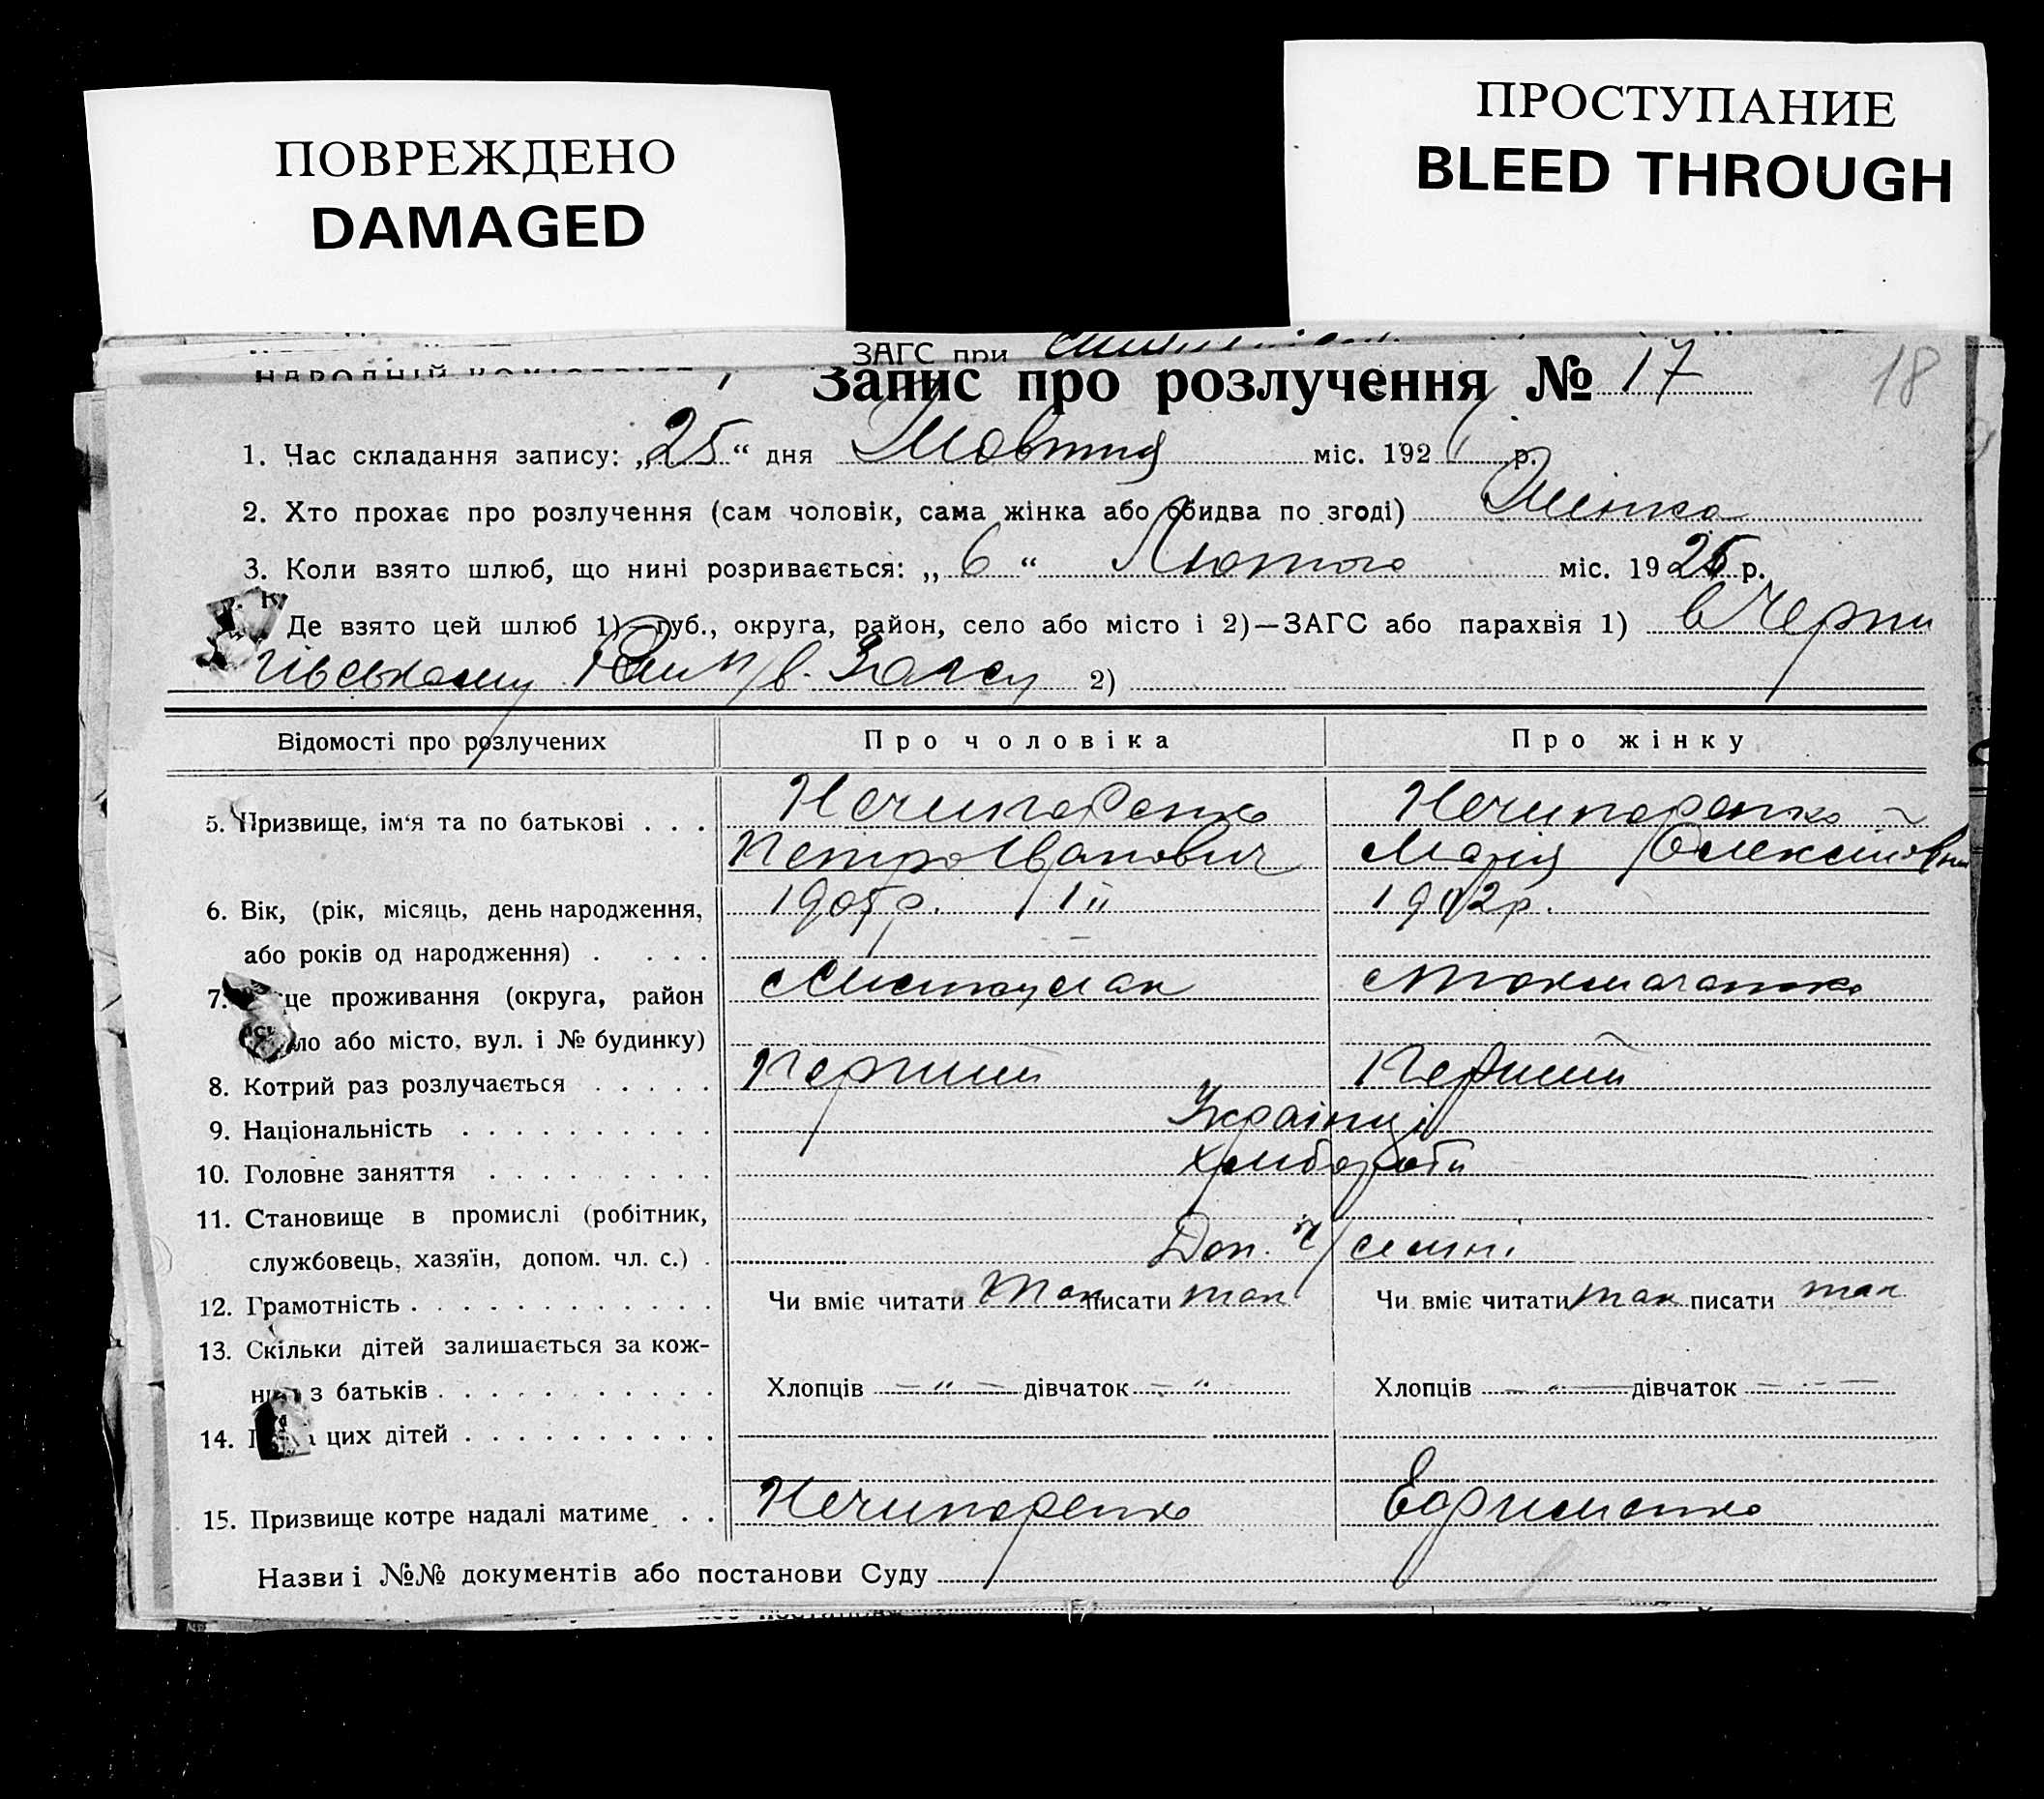 ПОВРЕЖДЕНО
DAMAGED
ПРОСТУПАНИЕ
BLEED THROUGH
ЗАГС при
Запис про розлучення № 17
18
1. Час складання запису: „25“ дня Жовтня міс. 192 р.
2. Хто прохає про розлучення (сам чоловік, сама жінка або обидва по згоді) Жінка
3. Коли взято шлюб, що нині розривається: „6“ Лютого міс. 1926 р.
Де взято цей шлюб 1)—губ., округа, район, село або місто і 2)—ЗАГС або парахвія 1) в Черни
гівському Загсу 2)
Відомості про розлучених Про чоловіка Про жінку
5. Призвище, ім‘я та по батькові . . . Нечипоренко Нечипоренко
Петро Іванович Марія Олексіївна
6. Вік, (рік, місяць, день народження, 1905р. 1902р.
або років од народження) . . . .
7. це проживання (округа, район
ло або місто, вул. і № будинку)
8. Котрий раз розлучається . . . . . Перший Перший
9. Національність . . . . . . . . . . Українці
10. Головне заняття . . . . . . . . . Хлібороби
11. Становище в промислі (робітник,
службовець, хазяїн, допом. чл. с.) . Доп. ч/семні
12. Грамотність . . . . . . . . . . . . Чи вміє читати так писати так Чи вміє читати так писати так
13. Скільки дітей залишається за кож-
ним з батьків . . . . . . . . . . . Хлопців — „ — дівчаток — „ Хлопців — „ — дівчаток — „ —
14. цих дітей . . . . . . . . . .
15. Призвище котре надалі матиме . . Нечипоренко Ефименко
Назви і №№ документів або постанови Суду